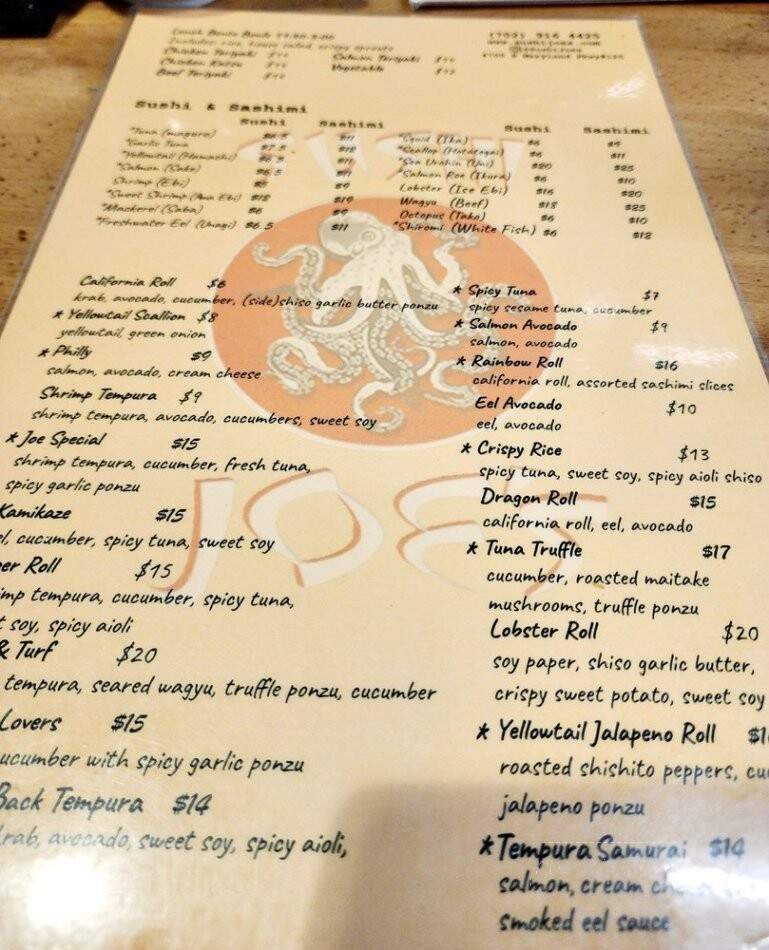 Lunch Bento Bowls
Chicken Teriyaki
Chicken Katsu
Beef Teriyaki
Salmon Teriyaki
Vegetable
(702) 914 4425
Sushi & Sashimi
Sushi Sashimi
*Tuna (maguro) $6.5 $11
*Garlic Tuna $7.5 $12
*Yellowtail (Hamachi) $6.5 $11
*Salmon (Sake) $6.5 $11
Shrimp (Ebi) $5 $9
*Sweet Shrimp (Ama Ebi) $12 $19
*Mackerel (Saba) $6 $9
*Freshwater Eel (Unagi) $6.5 $11
Sushi Sashimi
*Squid (Ika) $6 $9
*Scallop (Hotategai) $6 $11
*Sea Urchin (Uni) $20 $25
*Salmon Roe (Ikura) $6 $10
Lobster (Ise Ebi) $16 $20
Wagyu (Beef) $18 $25
Octopus (Tako) $6 $10
*Shiromi (White Fish) $6 $12
SUSHI
JOE'S
California Roll $6
krab, avocado, cucumber, (side)shiso garlic butter ponzu
* Yellowtail Scallion $8
yellowtail, green onion
* Philly $9
salmon, avocado, cream cheese
Shrimp Tempura $9
shrimp tempura, avocado, cucumbers, sweet soy
* Joe Special $15
shrimp tempura, cucumber, fresh tuna,
spicy garlic ponzu
Kamikaze $15
cucumber, spicy tuna, sweet soy
Roll $15
tempura, cucumber, spicy tuna,
soy, spicy aioli
& Turf $20
tempura, seared wagyu, truffle ponzu, cucumber
Lovers $15
cucumber with spicy garlic ponzu
Back Tempura $14
krab, avocado, sweet soy, spicy aioli,
* Spicy Tuna $7
spicy sesame tuna, cucumber
* Salmon Avocado $9
salmon, avocado
* Rainbow Roll $16
california roll, assorted sashimi slices
Eel Avocado $10
eel, avocado
* Crispy Rice $13
spicy tuna, sweet soy, spicy aioli shiso
Dragon Roll $15
california roll, eel, avocado
* Tuna Truffle $17
cucumber, roasted maitake
mushrooms, truffle ponzu
Lobster Roll $20
soy paper, shiso garlic butter,
crispy sweet potato, sweet soy
* Yellowtail Jalapeno Roll
roasted shishito peppers,
jalapeno ponzu
*Tempura Samurai $14
salmon, cream
smoked eel sauce